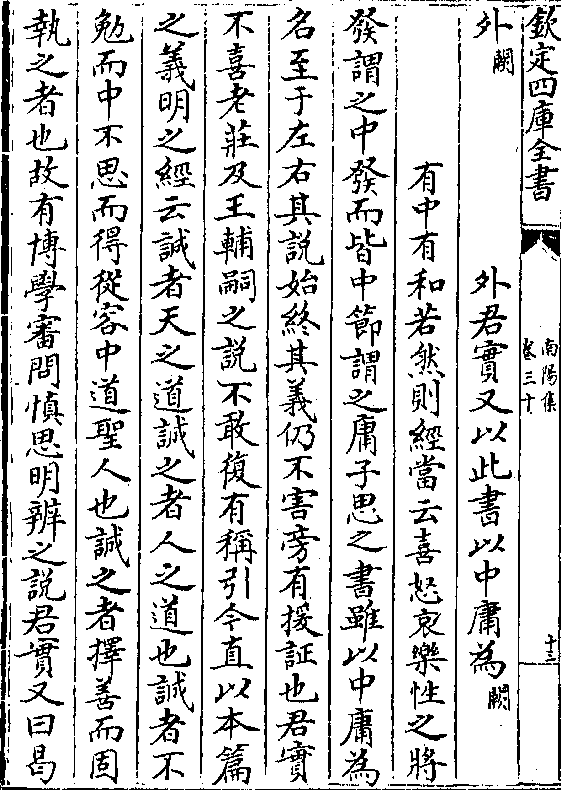 欽定四庫全書
南陽集
卷三十
十三
外闕
外君實又以此書以中庸為闕
有中有和若然則經當云喜怒哀樂性之將
發謂之中發而皆中節謂之庸子思之書雖以中庸為
名至于左右其說始終其義仍不害旁有援証也君實
不喜老莊及王輔嗣之說不敢復有稱引今直以本篇
之義明之經云誠者天之道誠之者人之道也誠者不
勉而中不思而得從容中道聖人也誠之者擇善而固
執之者也故有博學審問慎思明辨之說君實又曰曷